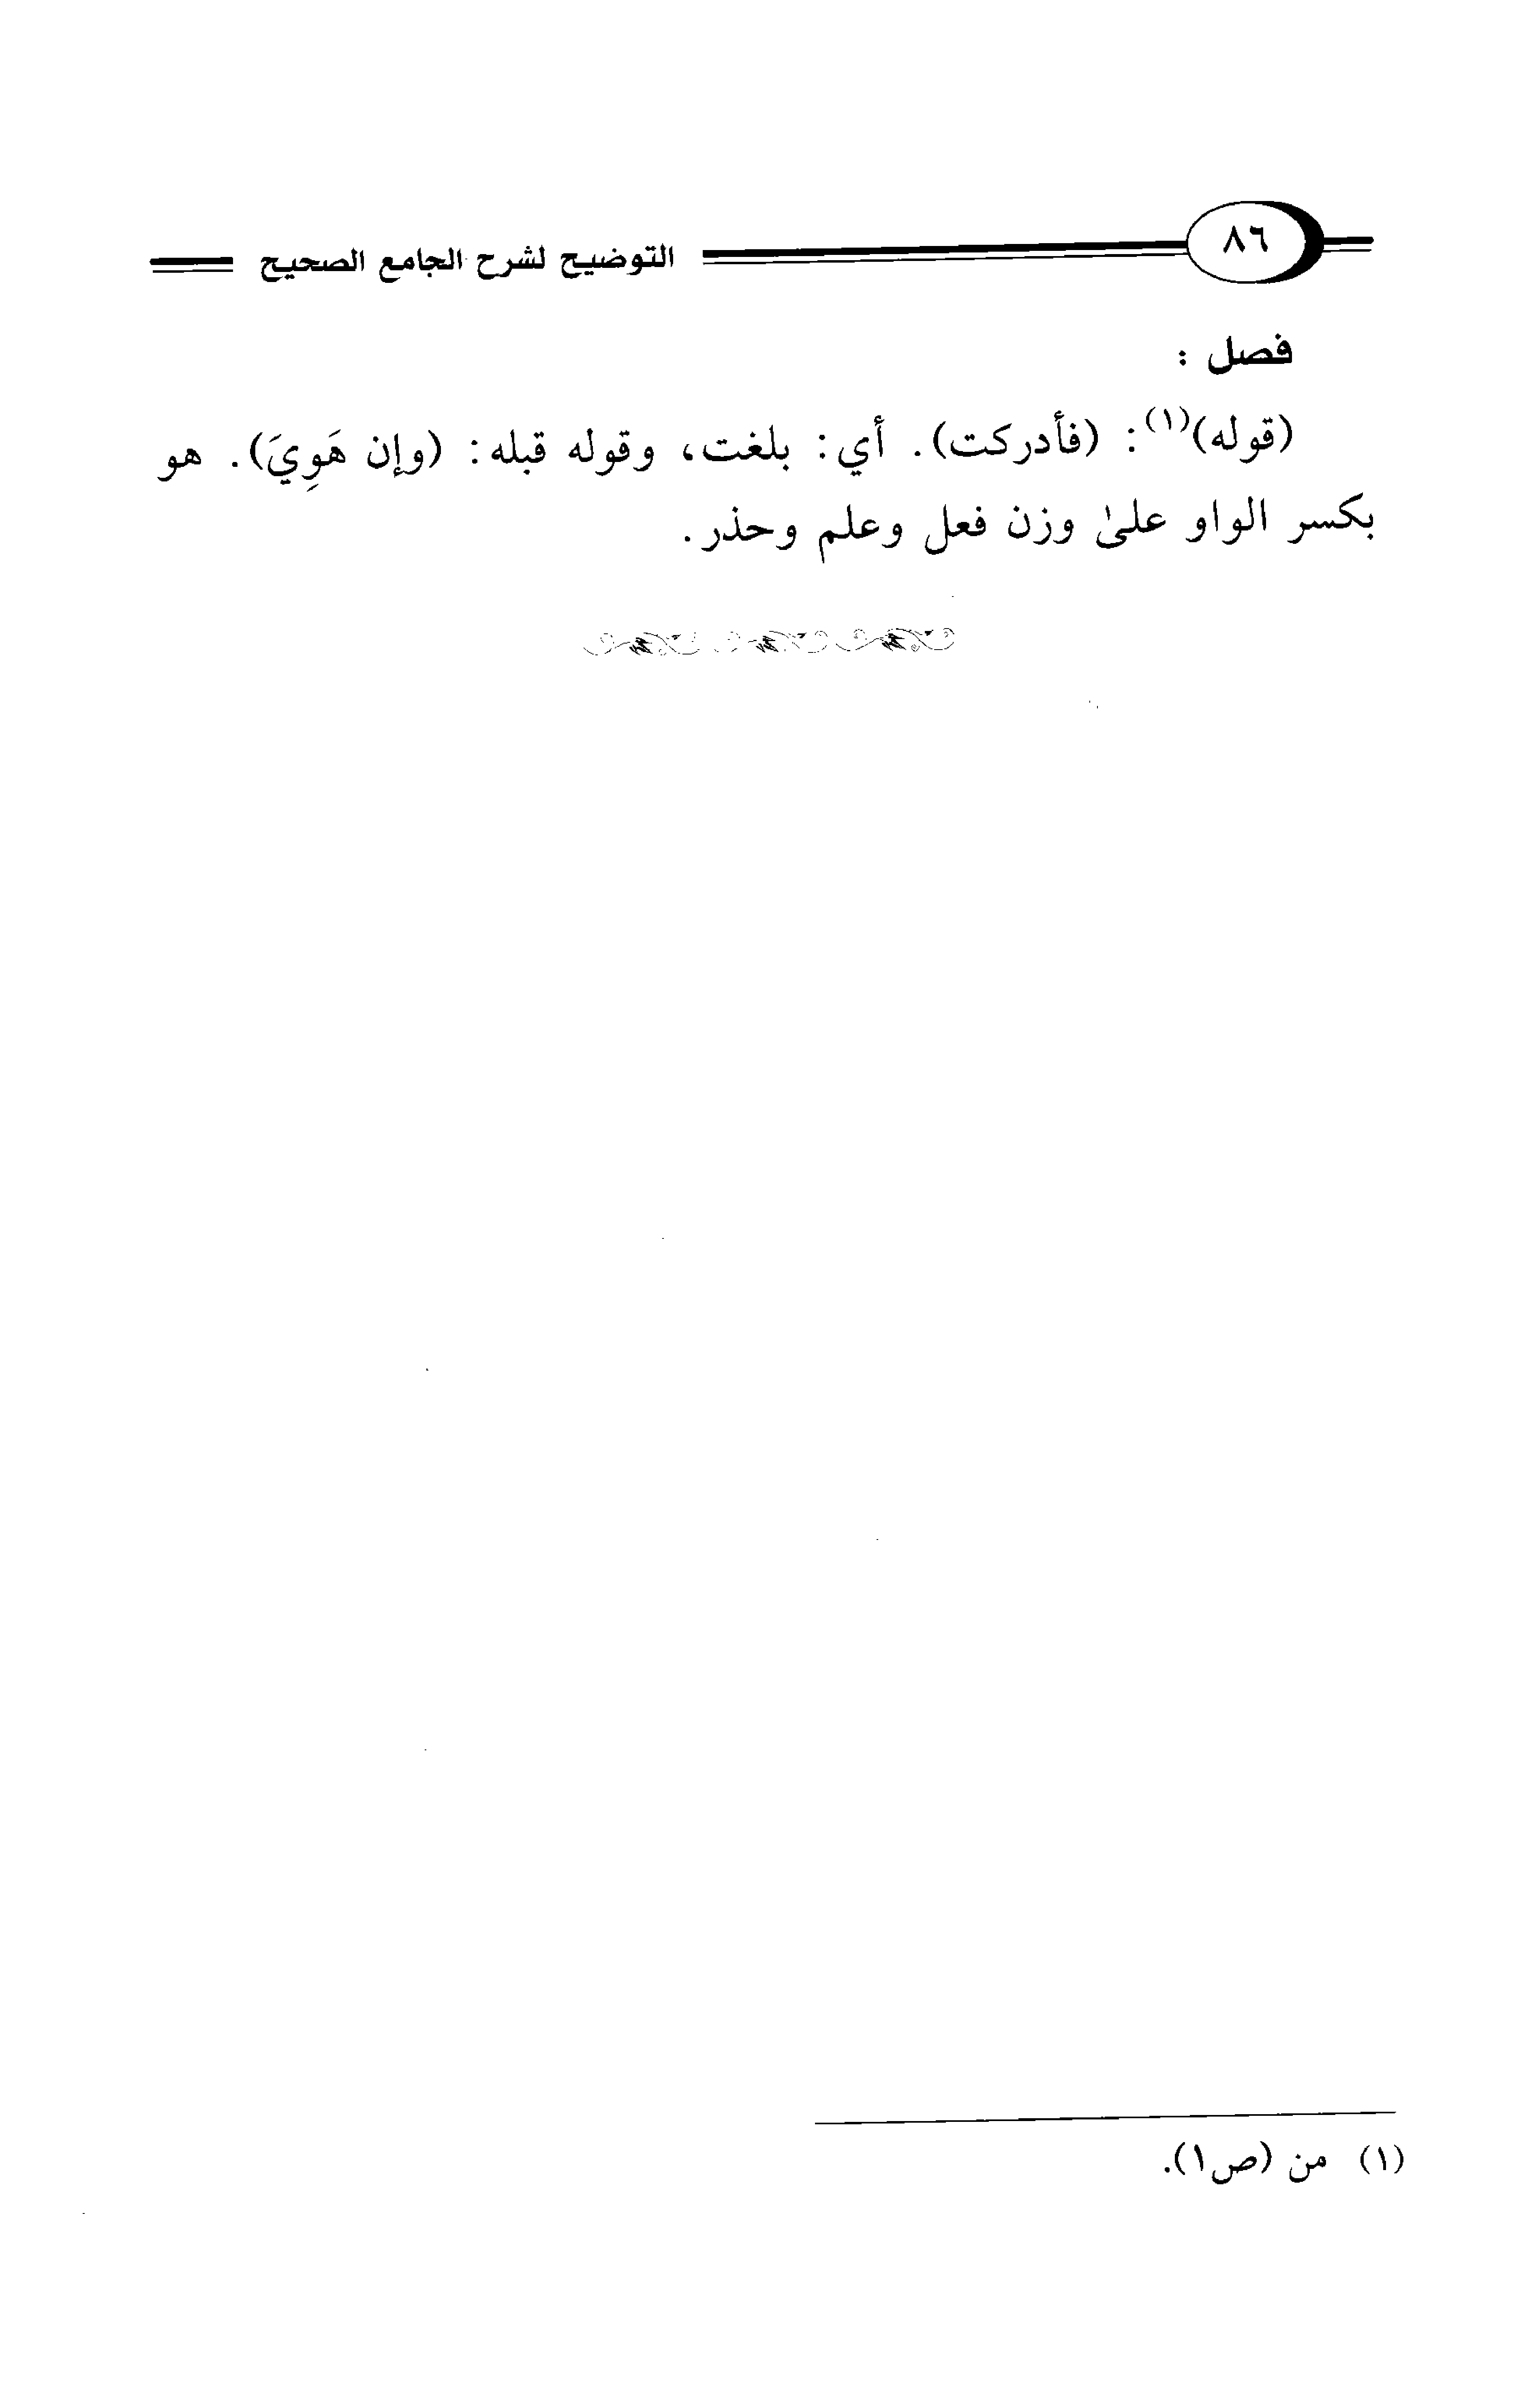 ٨٦ التوضيح لشرح الجامع الصحيح
فصل :
(قوله)(١): (فأدركت). أي: بلغت، وقوله قبله: (وإن هَوِيَ). هو
بكسر الواو علىٰ وزن فعل وعلم وحذر.
(١) من (ص١).